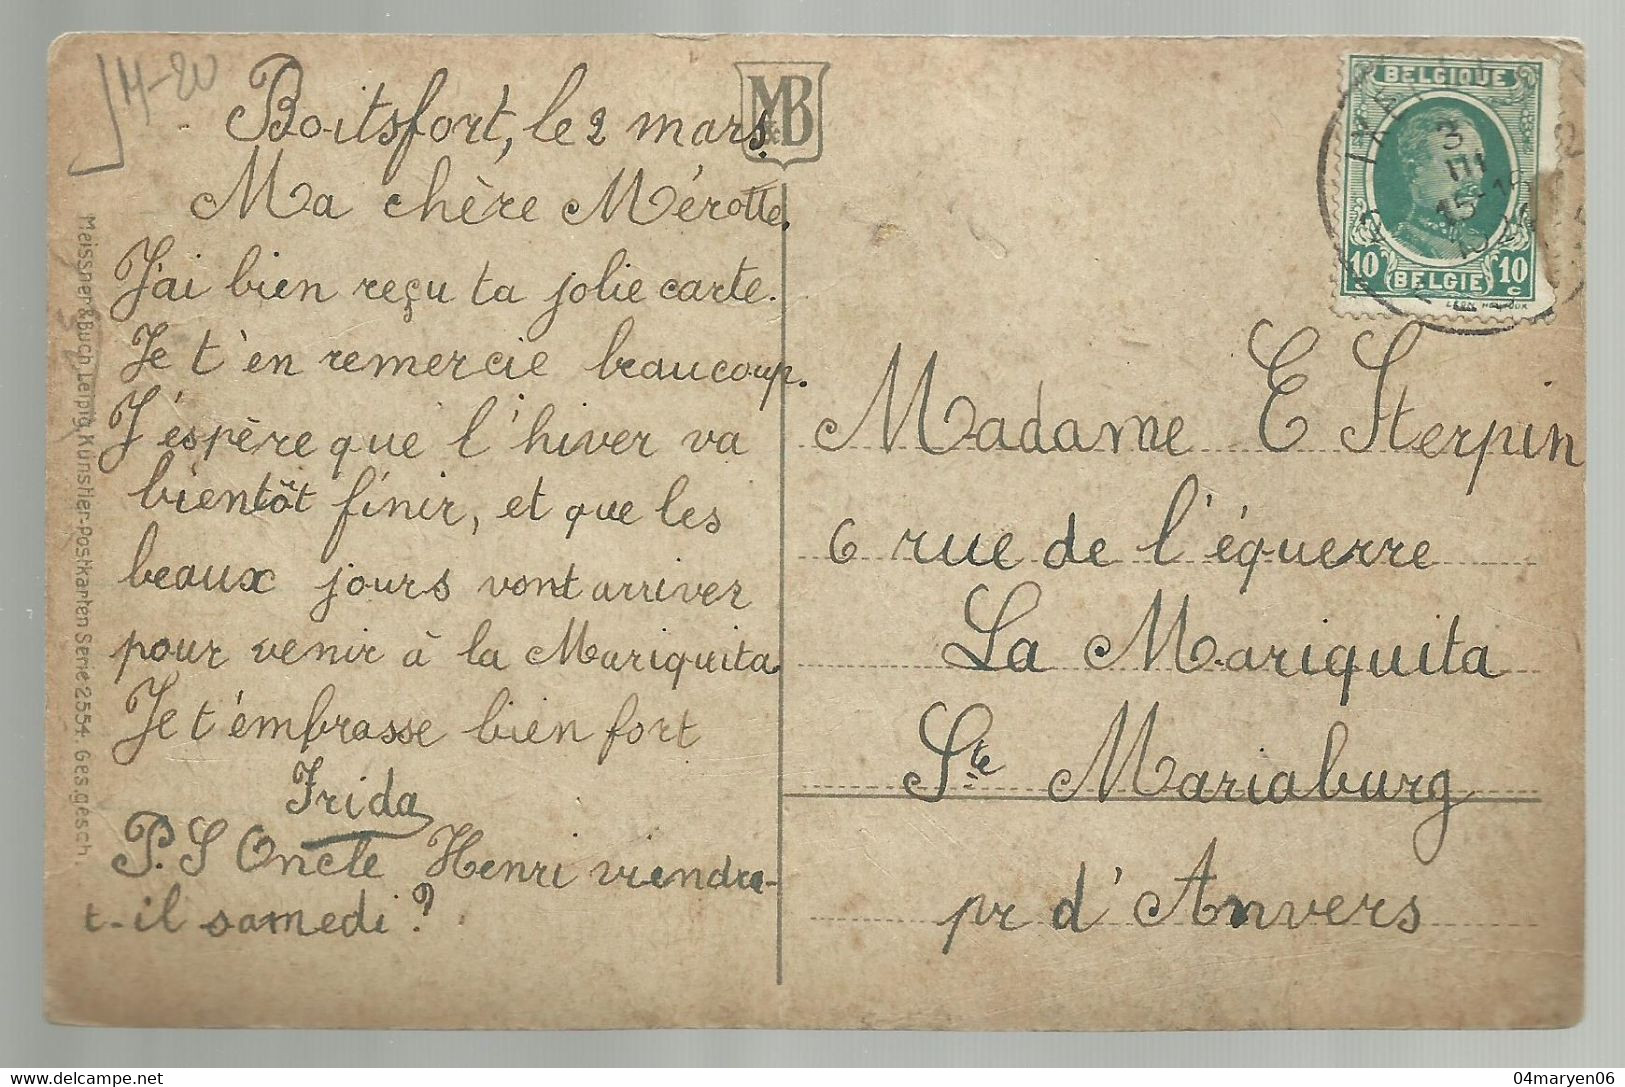 M-20
Boitsfort, le 2 mars.
Ma chère Mérotte,
J'ai bien reçu ta jolie carte.
Je t'en remercie beaucoup.
J'espère que l'hiver va
bientôt finir, et que les
beaux jours vont arriver
pour venir à la Mariquita
Je t'embrasse bien fort
Frida
P.S Oncle Henri viendra-
t-il samedi?
Meissner & Buch, Leipzig, Künstler-Postkarten Serie 2554 Ges.gesch.
M&B
BELGIQUE
10 BELGIE 10
c c
3
III
15
Madame E Sterpin
6 rue de l'équerre
La Mariquita
Ste Mariaburg
pr d'Anvers
04maryen06